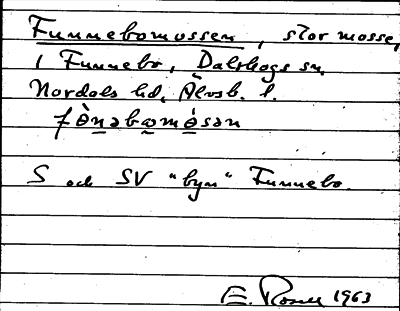 Funnebomossen, stor mosse,
i Funnebo, Dalskogs sn.
Nordals hd, Älvsb. l.
S och SV "byn" Funnebo.
E. Rosell 1963